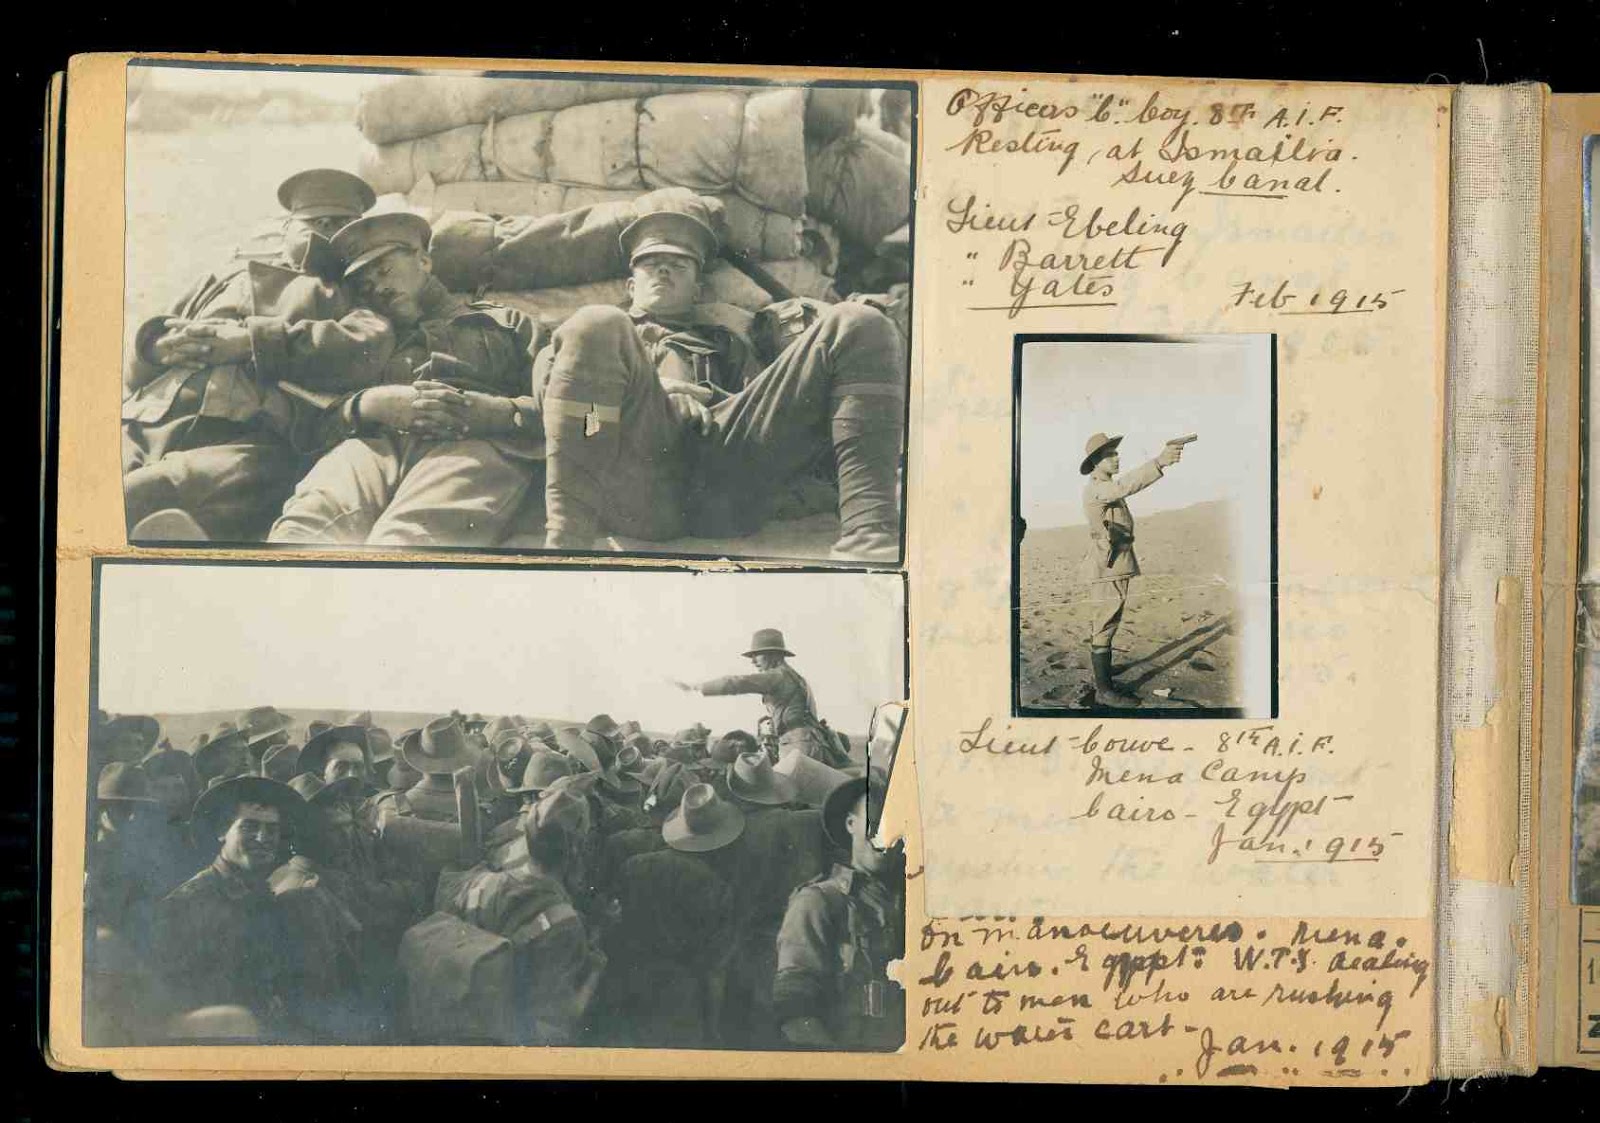 Officers "C" Coy. 8th A.I.F.
Resting, at Ismailia.
Suez Canal.
Lieut - Ebeling
" Barrett
" Yates
Feb 1915
Lieut - Couve - 8th A.I.F.
Mena Camp
Cairo - Egypt -
Jan. 1915
On manoeuveres. Mena.
Cairo. Egypt. W.T.Y. dealing
out to men who are rushing
the water cart -
Jan. 1915